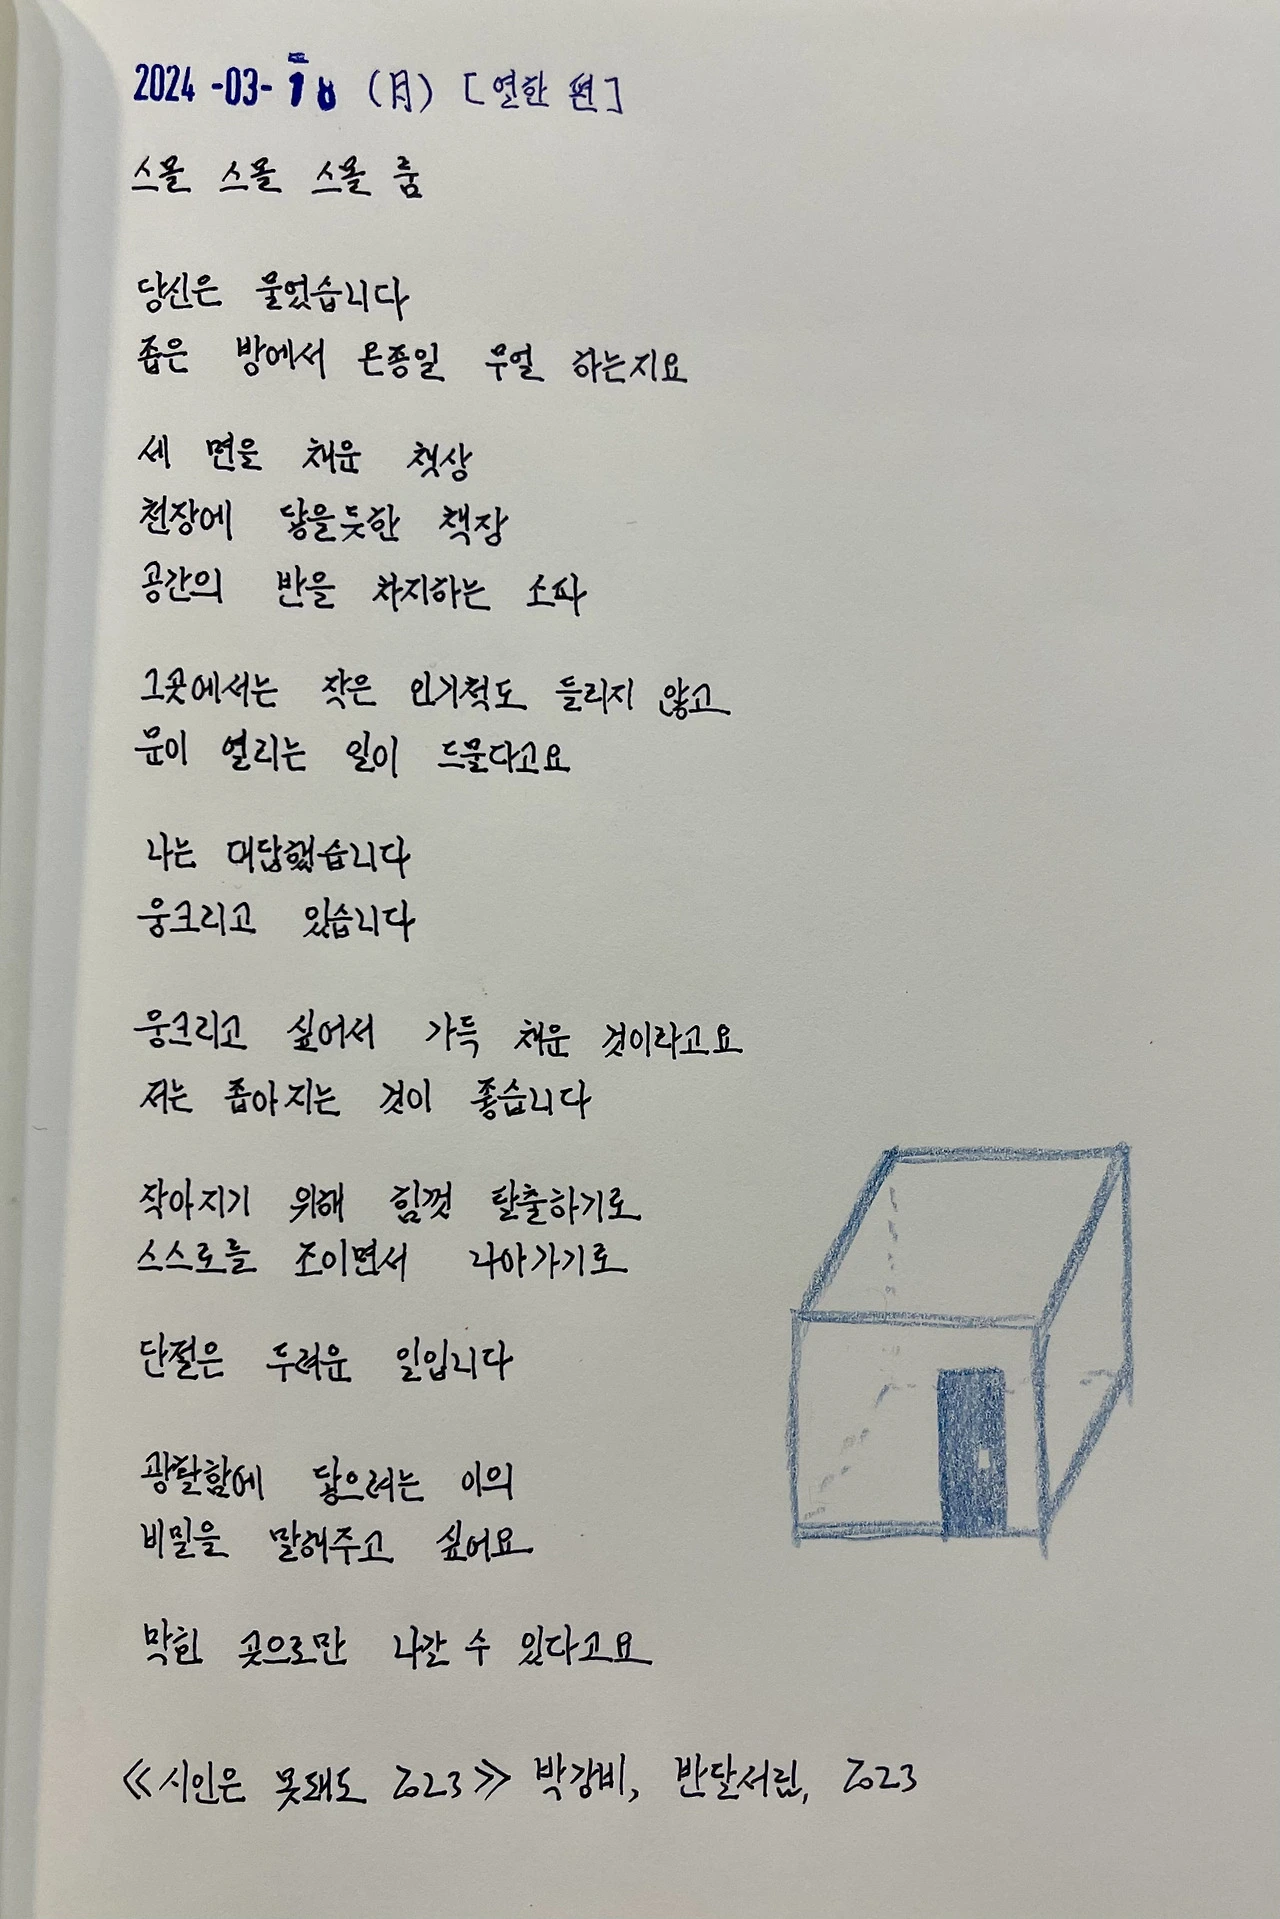 2024 -03- 18 (月) [연한 편]
스몰 스몰 스몰 룸
당신은 물었습니다
좁은 방에서 온종일 무얼 하는지요
세 면을 채운 책상
천장에 닿을듯한 책장
공간의 반을 차지하는 소파
그곳에서는 작은 인기척도 들리지 않고
문이 열리는 일이 드물다고요
나는 대답했습니다
웅크리고 있습니다
웅크리고 싶어서 가득 채운 것이라고요
저는 좁아지는 것이 좋습니다
작아지기 위해 힘껏 탈출하기로
스스로를 조이면서 나아가기로
단절은 두려운 일입니다
광활함에 닿으려는 이의
비밀을 말해주고 싶어요
막힌 곳으로만 나갈 수 있다고요
《시인은 못돼도 2023》 박강비, 반달서림, 2023